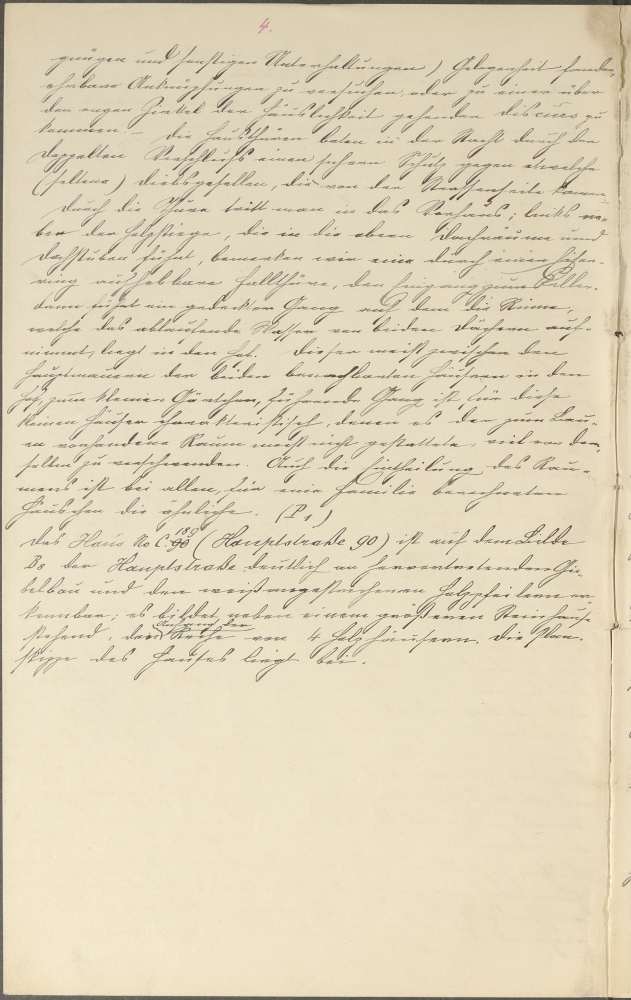 4.
gnügen und sonstigen Unterhaltungen) Gelegenheit fanden,
ehrbare Anknüpfungen zu versuchen, oder zu einer über
den engen Zirkel der Häuslichkeit gehenden discurs zu
kommen. – Die Hausthüren boten in der Nacht durch den
doppelten Verschluss einen sichern Schutz gegen etwelche
(seltene) diebsgesellen, die von der Strassenseite kamen.
Durch die Thüre tritt man in das Vorhaus; links ne-
ben der Holzstiege, die in die obern Dachräume und
Dachstuben führt, bemerken wir eine durch einen Eisen-
ring aufhebbare Fallthüre, den Eingang zum Keller.
dann führt ein gedeckter Gang auf dem die Rinne,
welche das ablaufende Wasser von beiden Dächern auf-
nimmt, liegt in den Hof. Dieser meist zwischen den
Hauptmauern der beiden benachbarten Häuser in den
Hof, zum kleinen Gärtchen, führende Gang ist für diese
kleinen Häuser charakteristisch, denen es der zum Bau-
en vorhandene Raum meist nicht gestattete, viel von dem-
selben zu verschwenden. Auch die Eintheilung des Rau-
mes ist bei allen, für eine Familie berechneten
Häuschen die ähnliche. (P 1)
189
Das Haus No C. 90 (Hauptstraße 90) ist auf dem Bilde
B2 der Hauptstraße deutlich an hervortretenden Gie-
belbau und den weiß angestrichenen Holzpfeilern er-
kennbar; es bildet neben einem größeren Steinhause
stehend, die Reihe von 4 Holzhäusern. Die Plan-
skizze des Hauses liegt bei.